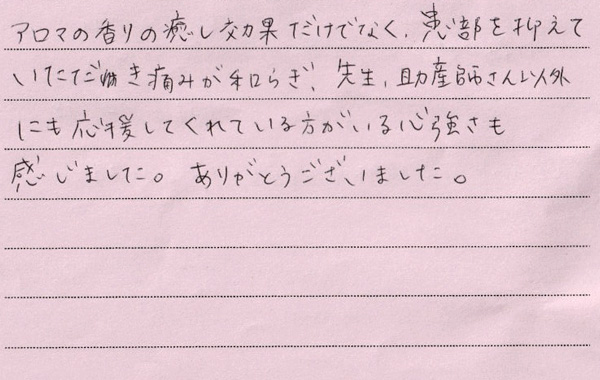 アロマの香りの癒し効果だけでなく、患部を抑えて
いただき痛みが和らぎ、先生、助産師さん以外
にも応援してくれている方がいる心強さも
感じました。ありがとうございました。